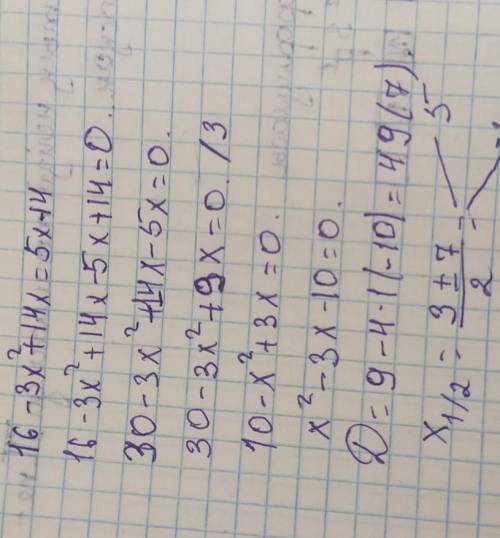 16-3x²+14x=5x+14
16-3x²+14x-5x+14=0.
30-3x²+14x-5x=0.
30-3x²+9x=0. /3
10-x²+3x=0.
x²-3x-10=0.
D=9-4·1(-10)=49(7).
x1/2=(3±7)/2= 5